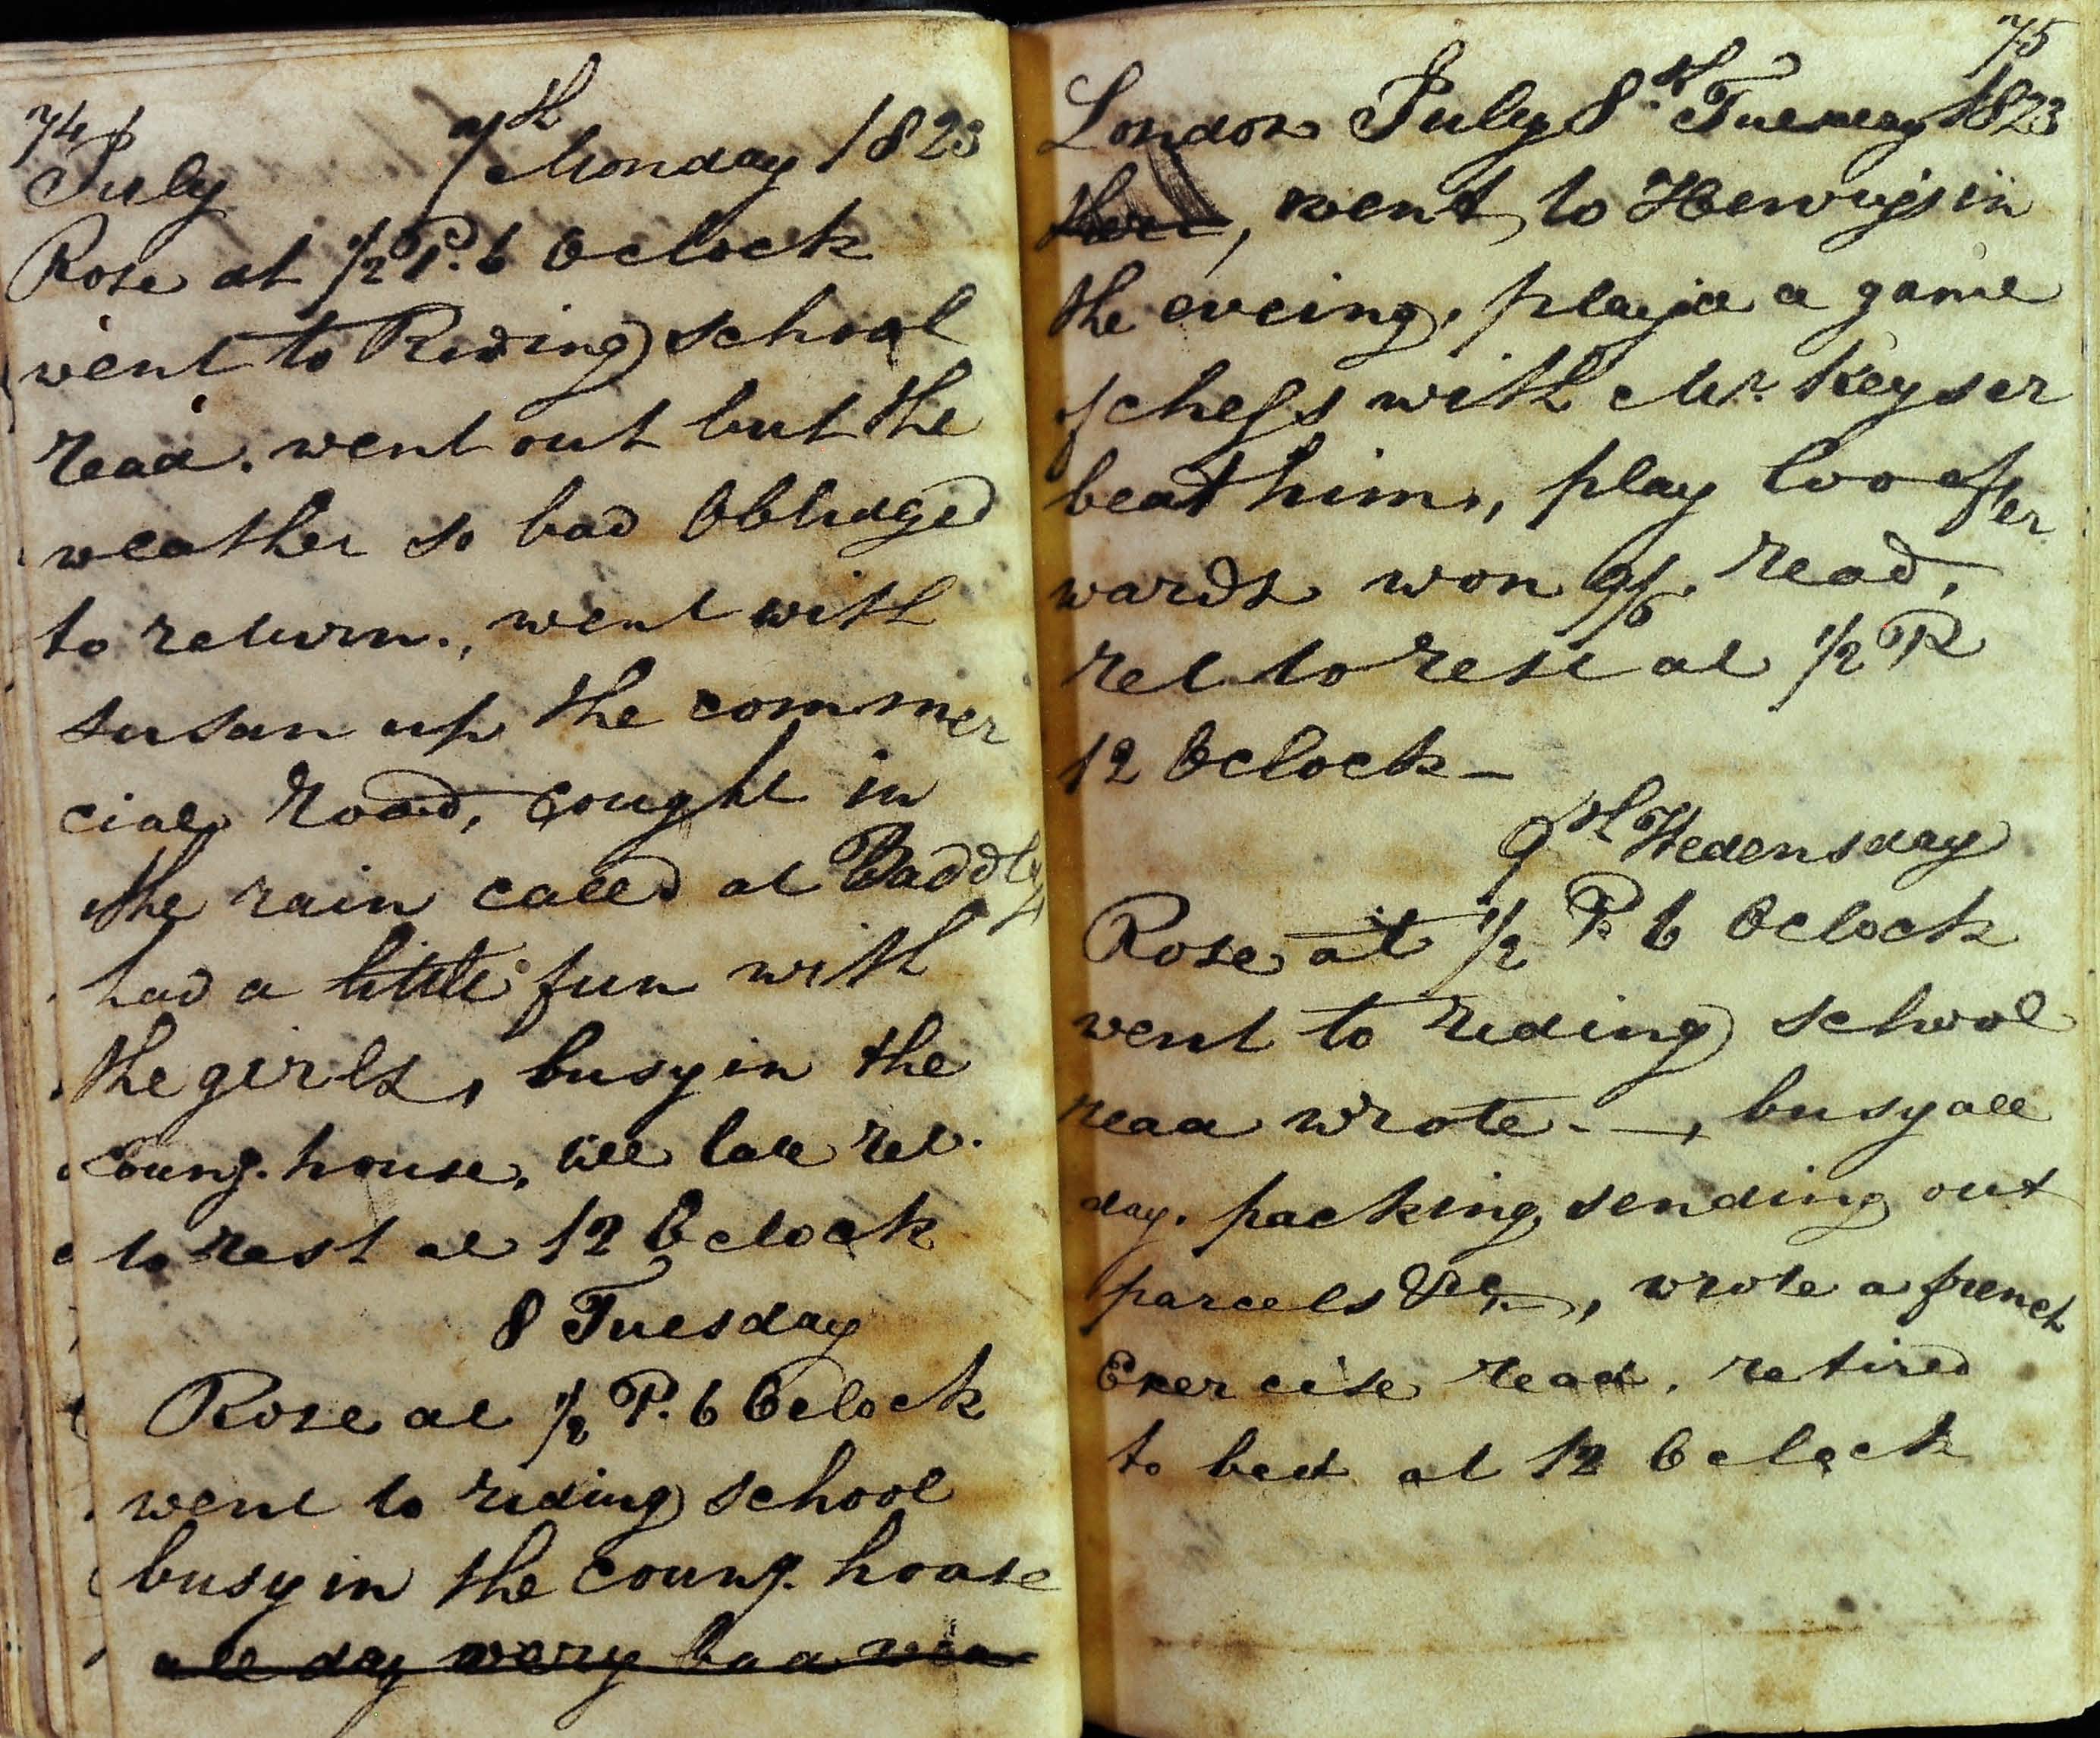 74
July 7th Monday 1823
Rose at 1/2 P. 6 Oclock
went to Riding school
read. went out but the
weather so bad Oblidged
to return., went with
susan up the commer
cial Road, cought in
the rain called at Baddlys
had a little fun with
the girls, busy in the
Coung. house, till late ret.
to rest at 12 Oclock
8 Tuesday
Rose at 1/2 P. 6 Oclock
went to riding school
busy in the coung. house
all day wery bad wea
75
London July 8th Tuesday 1823
ther, went to in
the eveing, playd a game
of chess with Mr. Keyser
beat him, play loo after
wards won 9/6. read,
ret to rest at 1/2 P
12 Oclock –
9th Wedensday
Rose at 1/2 P. 6 Oclock
went to riding school
read wrote. —, busy all
day. packing sending out
parcels &c –, wrote a french
Exercise read. retired
to bed at 12 Oclock